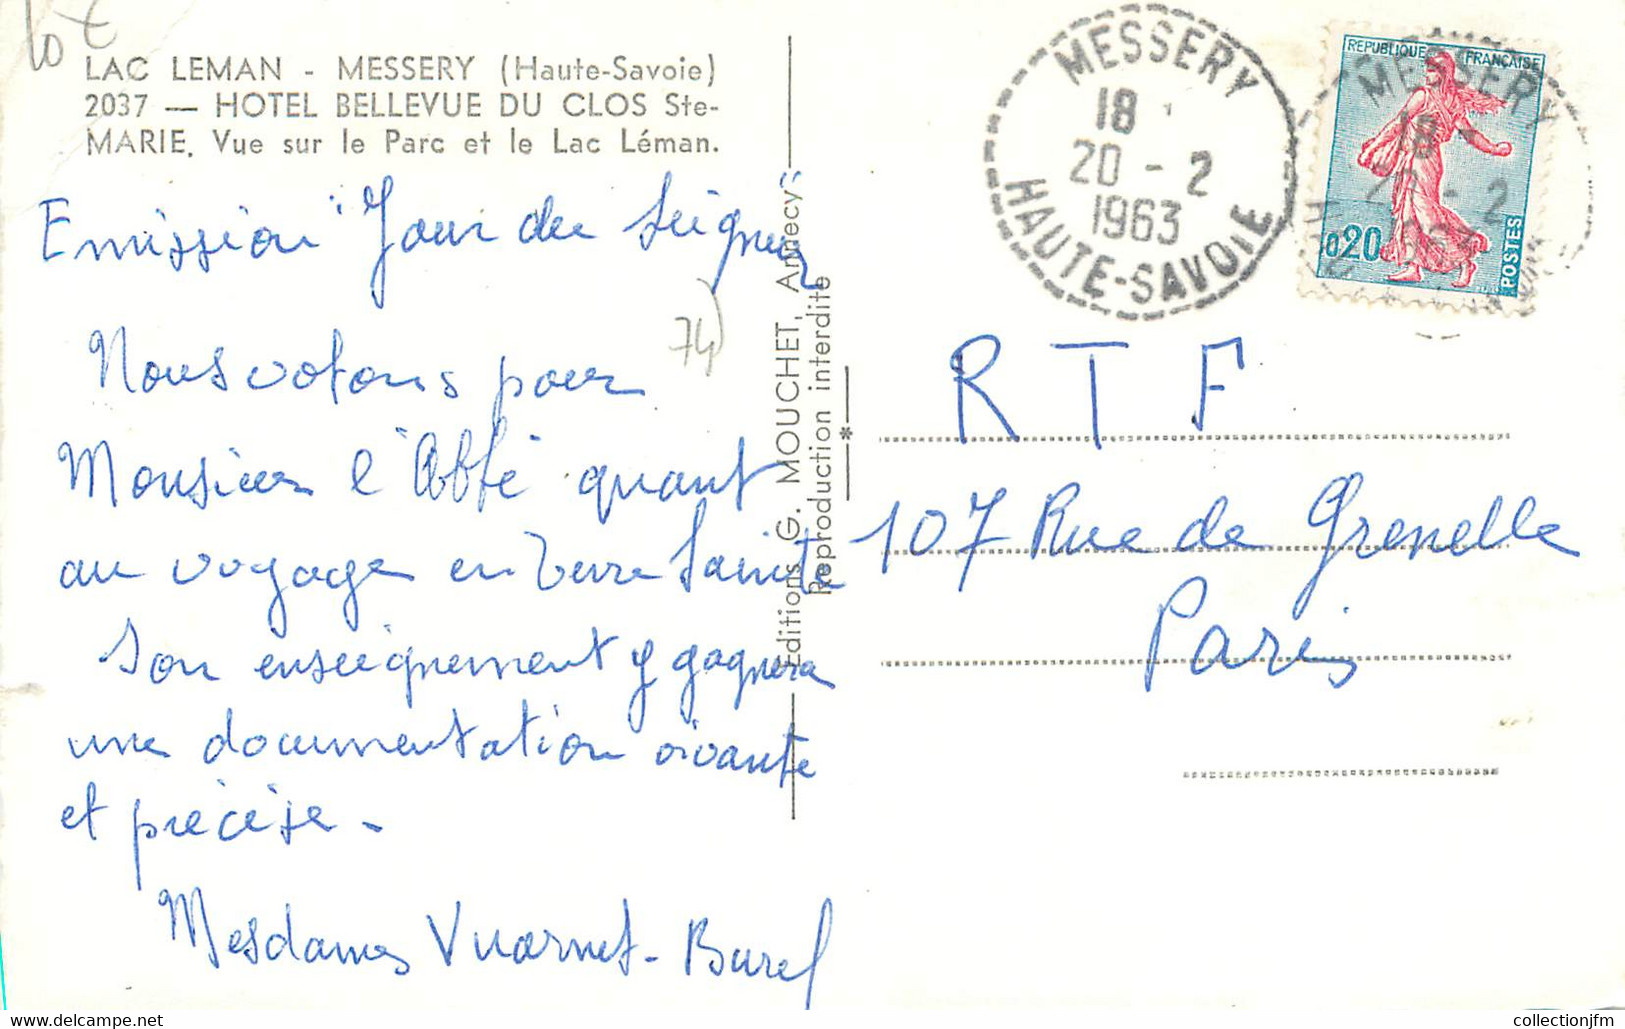 10 €
LAC LEMAN - MESSERY (Haute-Savoie)
2037 — HOTEL BELLEVUE DU CLOS Ste-
MARIE. Vue sur le Parc et le Lac Léman.
Emission "Jour du Seigneur"
Nous votons pour
Monsieur l'Abbé quant
au voyage en Terre Sainte
Son enseignement y gagnera
une documentation vivante
et précise.
Mesdames Vuarnet-Burel
74)
Editions G. MOUCHET, Annecy
Reproduction interdite
*
MESSERY
18
20 - 2
1963
HAUTE-SAVOIE
REPUBLIQUE FRANÇAISE
0,20
POSTES
MESSERY
18
20 - 2
1963
R T F
107 Rue de Grenelle
Paris
delcampe.net
collectionjfm